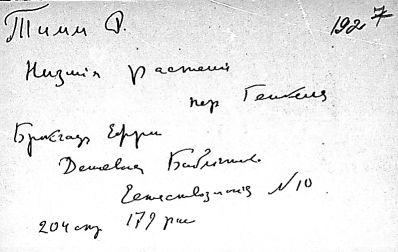 Тимм Р. 1927
Низшiя растенiя
пер Генкеля
Брокгауз Ефрон
Дешевая Библiотека
Естествознания №10
204 стр 179 рис